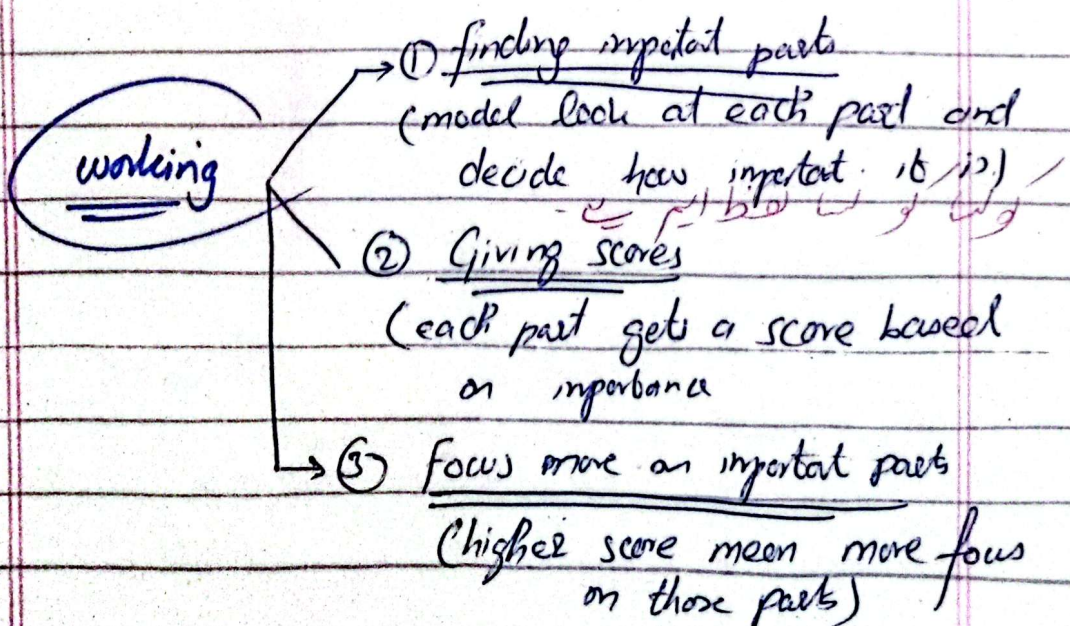 ① finding impotat parts
(model look at each part and
working
decide how impotat it is)
کونسا لفظ اہم ہے -
② Giving scores
(each part gets a score based
on importance
③ Focus more on importat parts
(higher score mean more focus
on those parts)